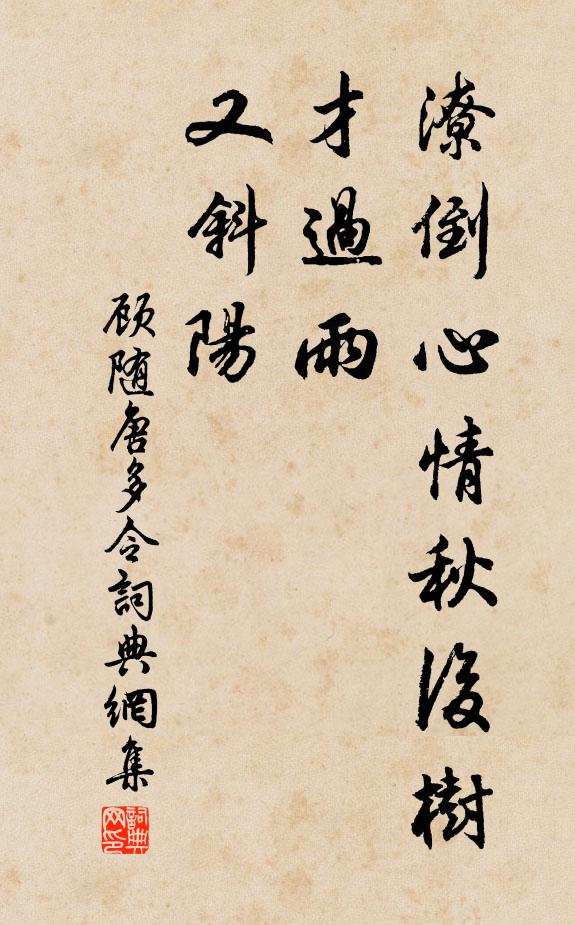 潦倒心情秋後樹
才過雨
又斜陽
顾随唐多令詞典網集
詞典網印